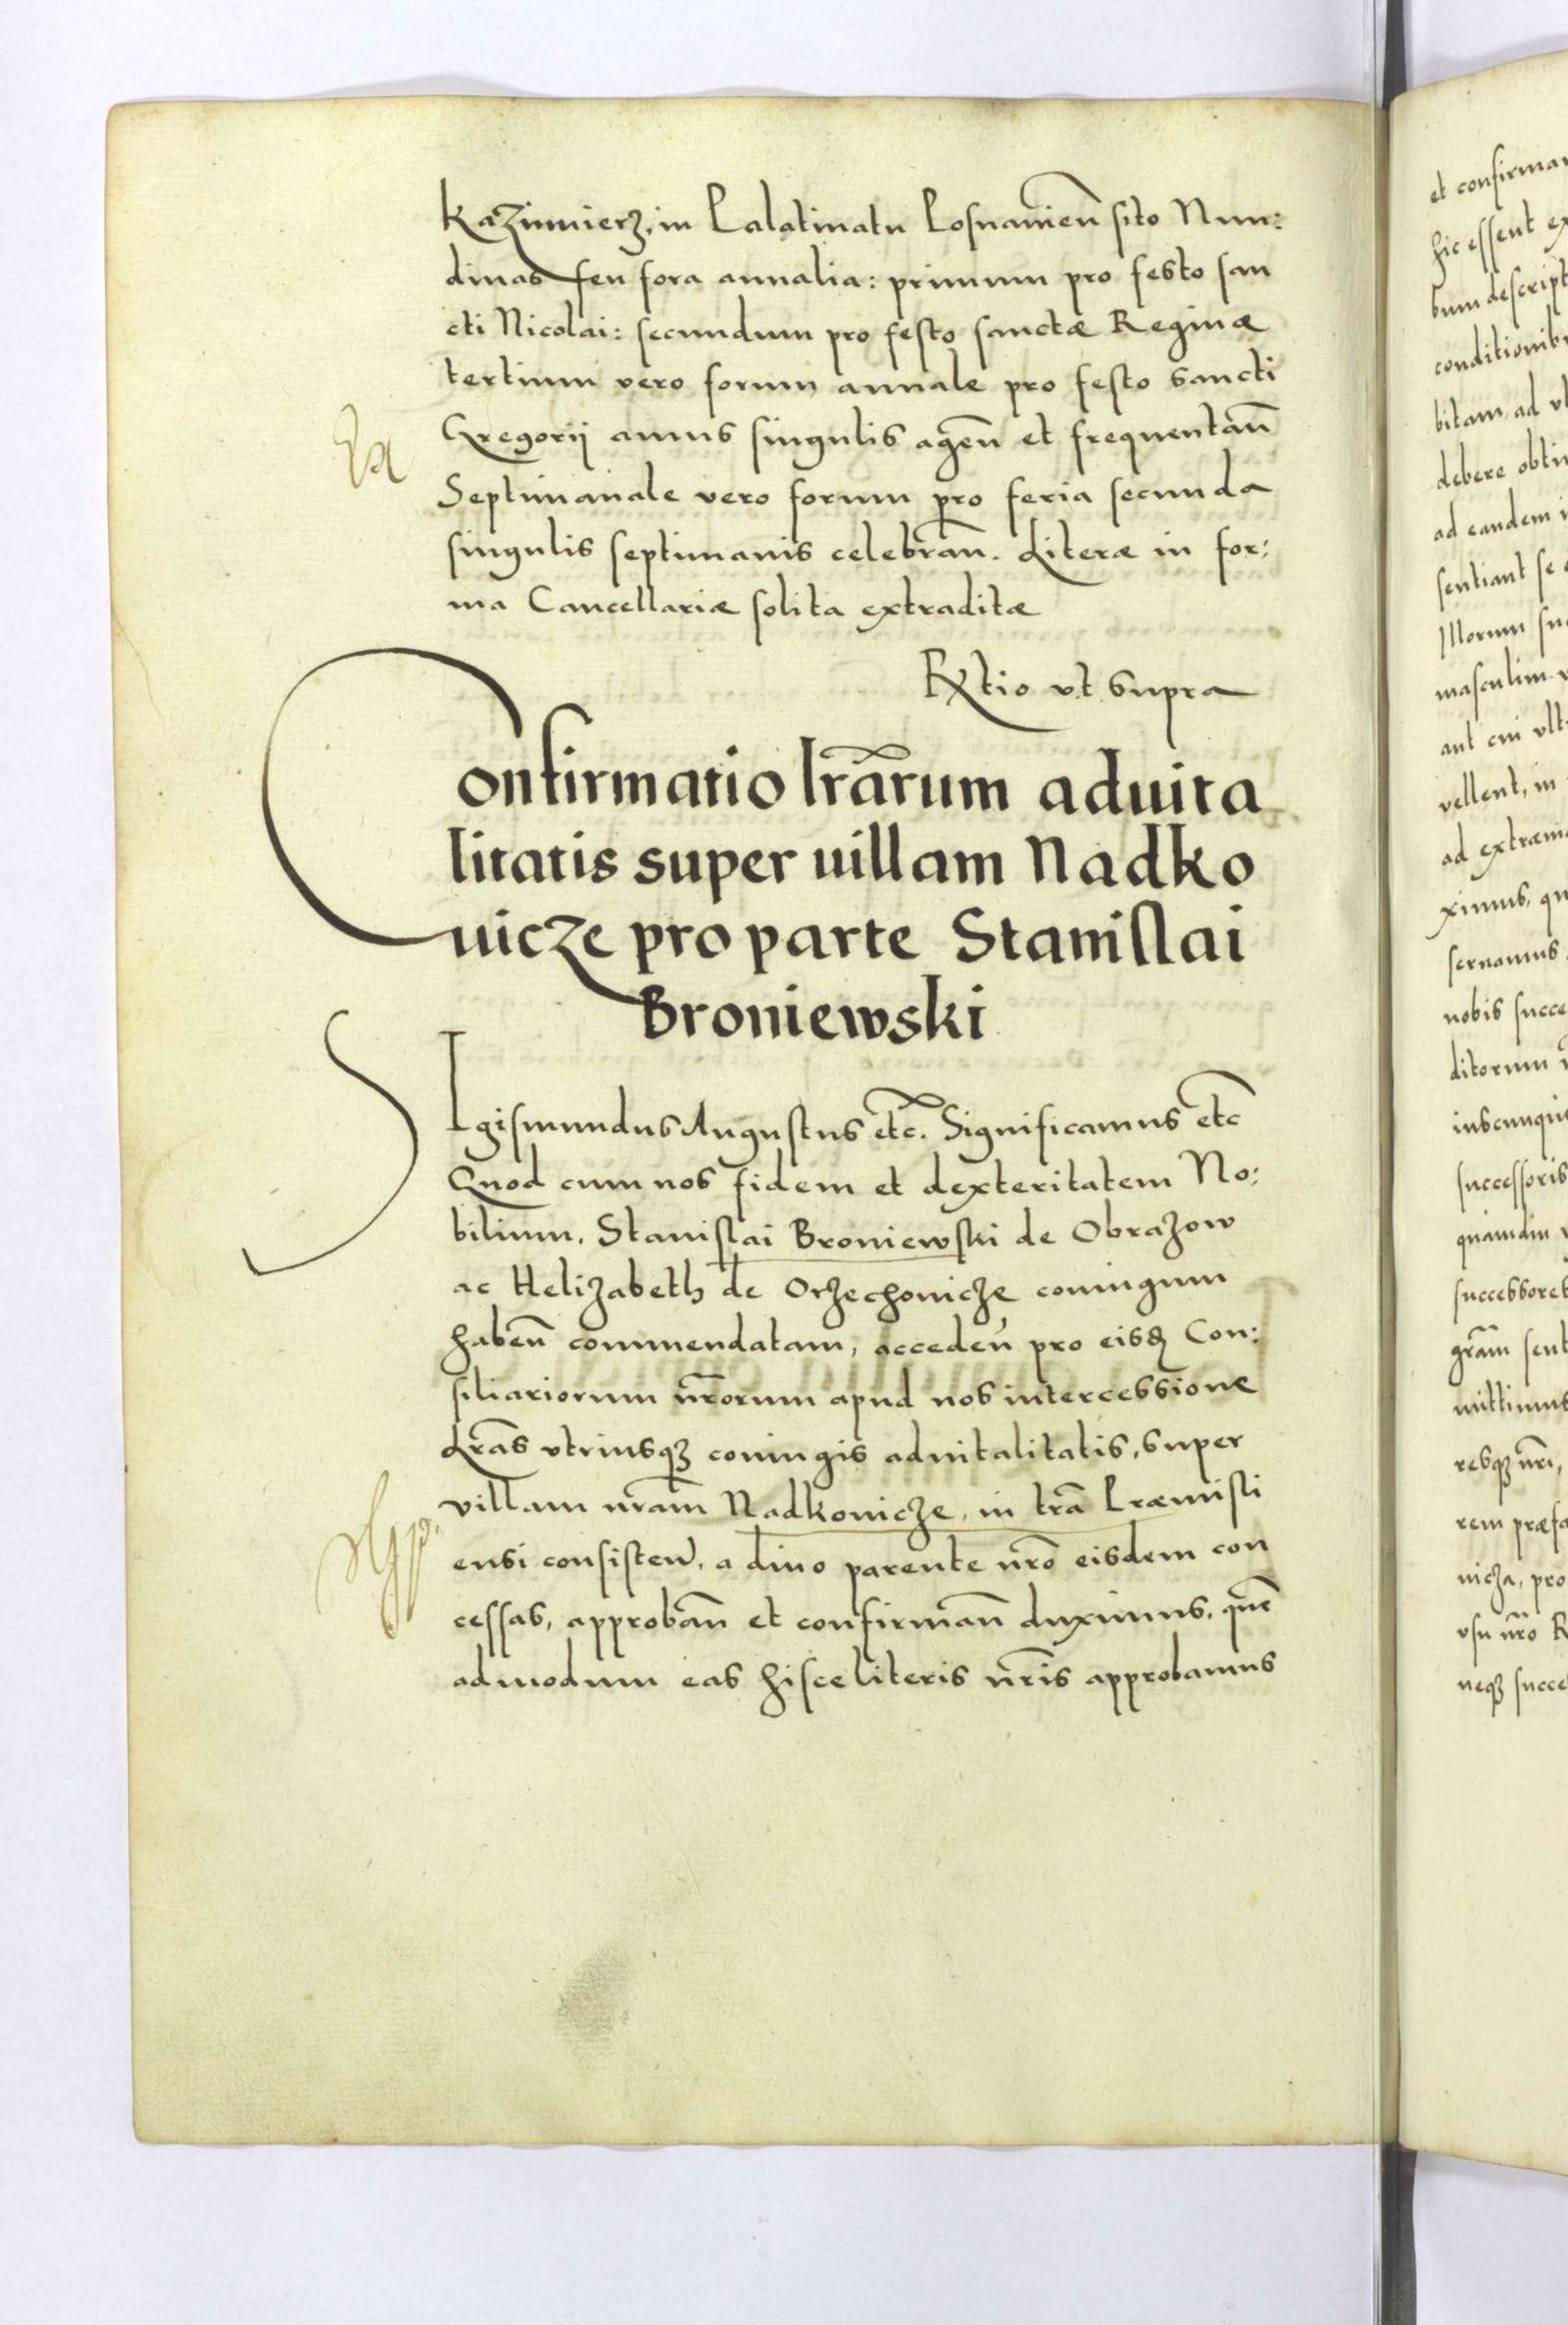 Kazimierz, in Palatinatu Posnanien̄ sito Nun:
dinas seu fora annalia: primum pro festo san
cti Nicolai: secundum pro festo sanctæ Reginæ
tertium vero forum annale pro festo sancti
Gregorij annis singulis agen̄ et frequentan̄
Septimanale vero forum pro feria secunda
singulis septimanis celebran̄. Literæ in for:
ma Cancellariæ solita extraditæ
Rtio vt supra
Confirmatio lr̄arum aduita
litatis super uillam Nadko
uicze pro parte Stanislai
Broniewski
SIgismundus Augustus etc̄. Significamus etc̄
Quod cum nos fidem et dexteritatem No:
bilium, Stanislai Broniewski de Obrazow
ac Helizabeth de Orzechouicze coniugum
haben̄ commendatam, acceden̄ pro eisdꝫ Con:
siliariorum nr̄orum apud nos intercessione
Lr̄as vtriusqꝫ coniugis aduitalitatis, super
villam nr̄am Nadkouicze, in tr̄a Præmisli
ensi consisten̄, a diuo parente nr̄o eisdem con
cessas, approban̄ et confirman̄ duximus, quē
admodum eas hisce literis nr̄is approbamus
et confirmam
hic essent ex
bum descript
conditionib
bitam, ad vl
debere obtin
ad eandem i
sentiant se
Illorum suc
masculini v
aut cui vlt
vellent, in
ad extræm
ximus, qu
seruamus
nobis succe
ditorum
iuscunque
successoris
quamdiu v
successores
gr̄am sent
mittimus
resqꝫ nr̄i,
rem præfa
uicza, pro
vsu nr̄o R
neqꝫ succe